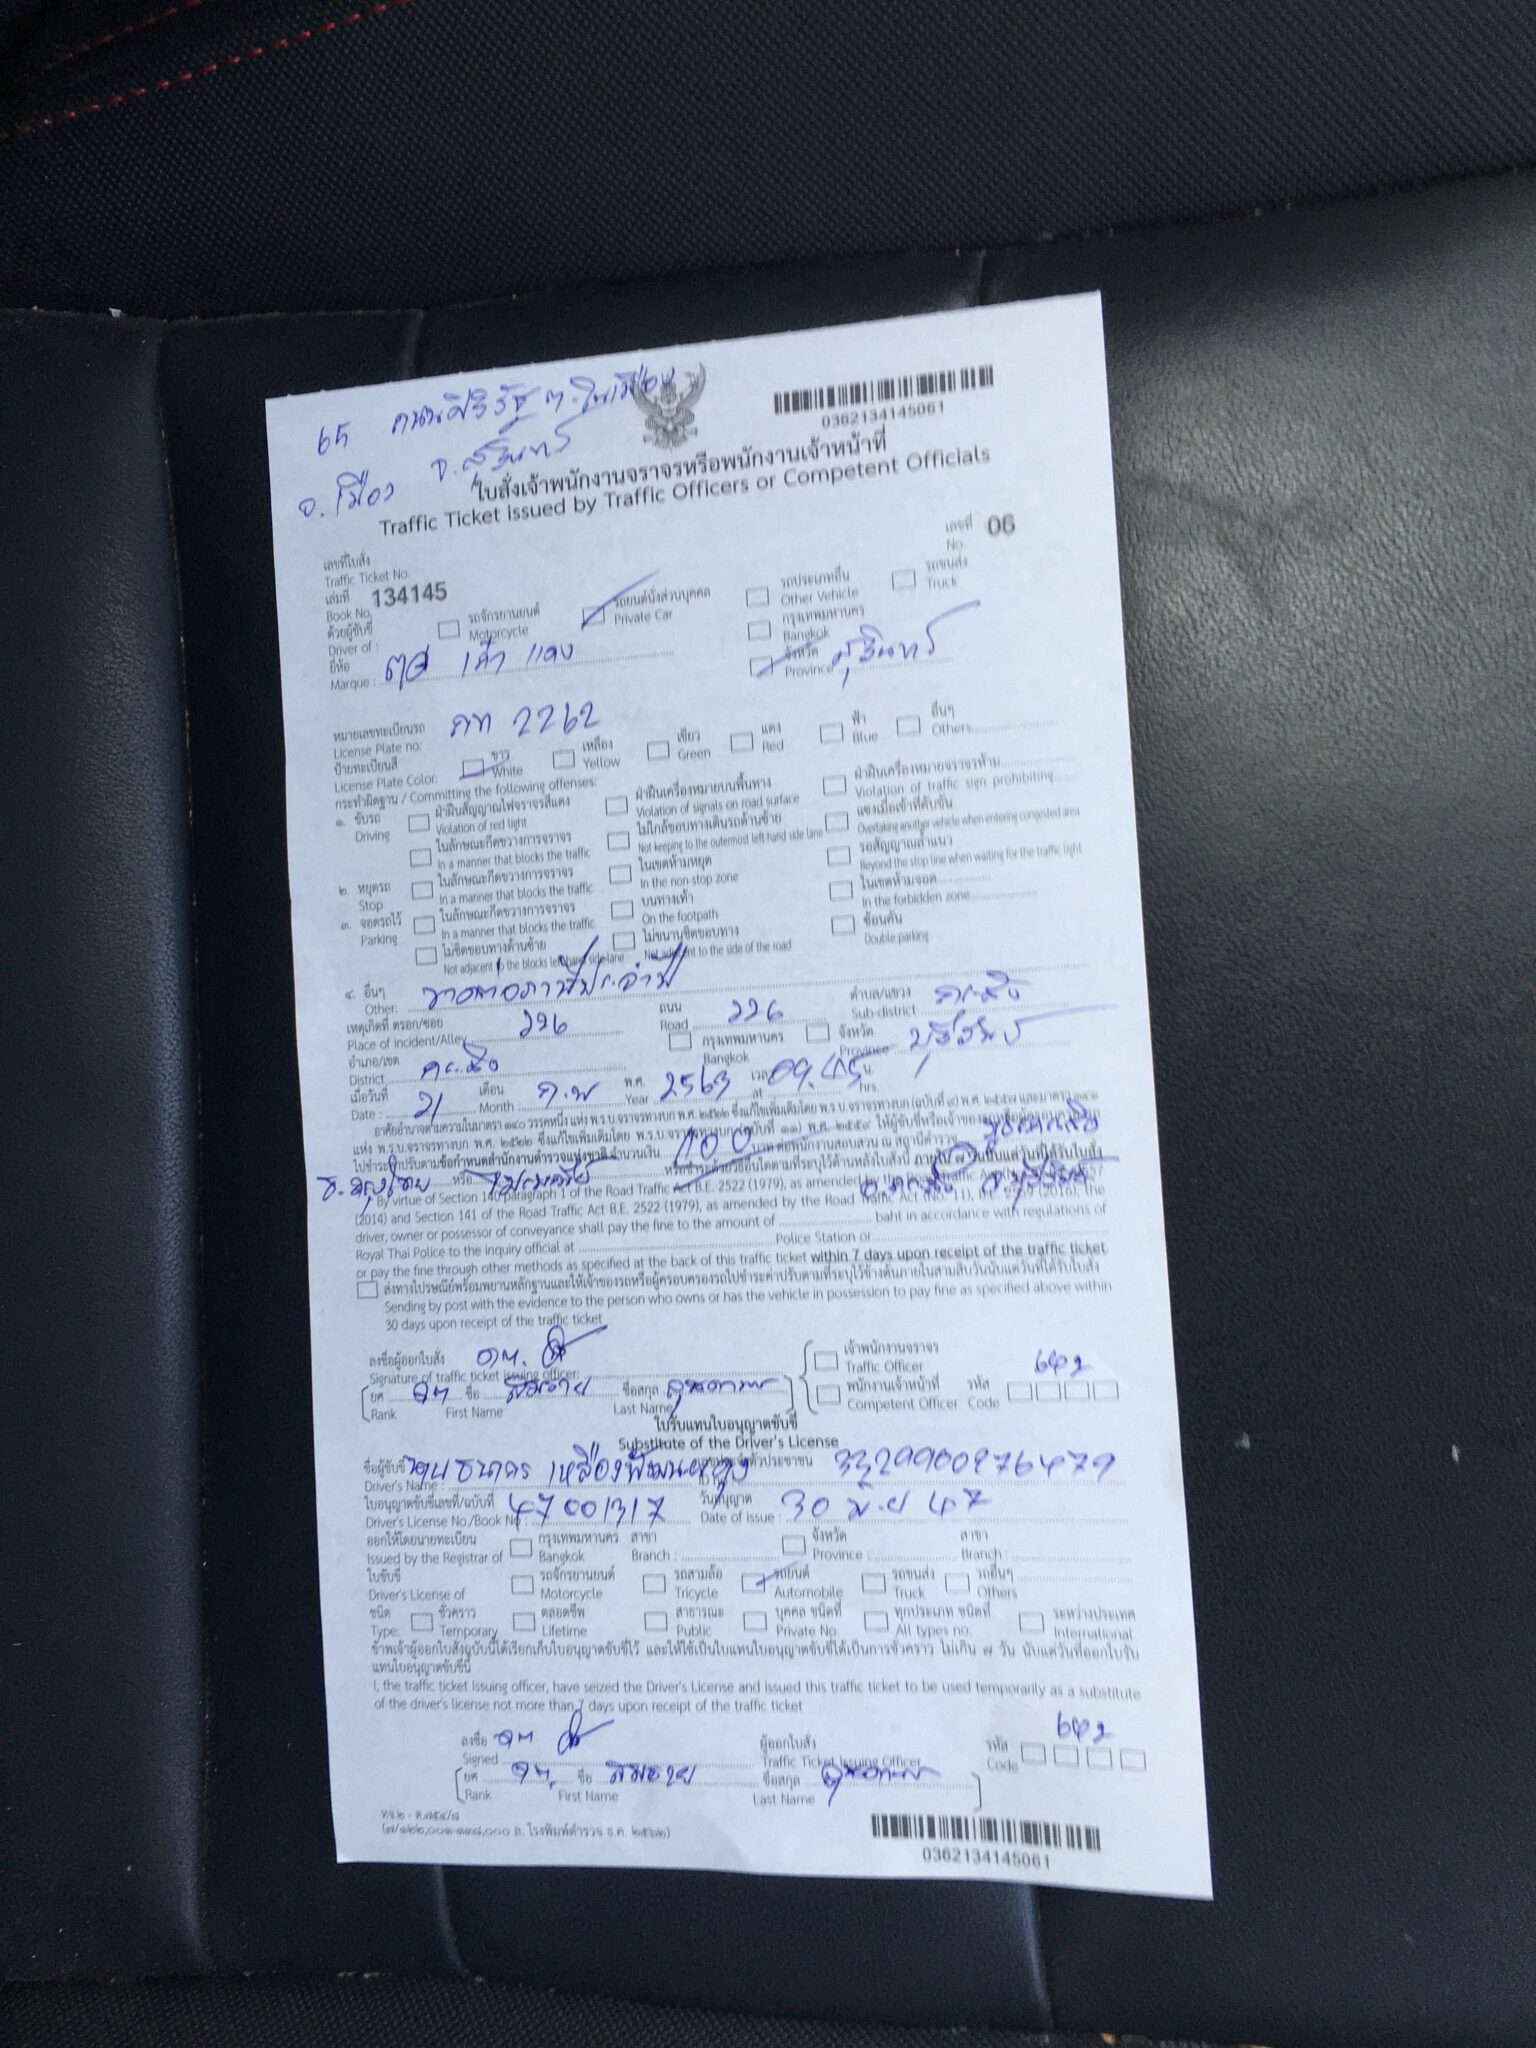 65 ถนนศิริรัฐ ต.ในเมือง
อ.เมือง จ.สุรินทร์
0362134145061
ใบสั่งเจ้าพนักงานจราจรหรือพนักงานเจ้าหน้าที่
Traffic Ticket issued by Traffic Officers or Competent Officials
เลขที่ 06
No.
เลขที่ใบสั่ง
Traffic Ticket No.
เล่มที่ 134145
Book No.
ด้วยผู้ขับขี่ รถจักรยานยนต์ รถยนต์นั่งส่วนบุคคล รถประเภทอื่น รถขนส่ง
Driver of : Motorcycle Private Car Other Vehicle Truck
กรุงเทพมหานคร
Bangkok
ยี่ห้อ เก๋ง แดง จังหวัด สุรินทร์
Marque : Province
หมายเลขทะเบียนรถ กท 2262
License Plate no:
ป้ายทะเบียนสี ขาว เหลือง เขียว แดง ฟ้า อื่นๆ
License Plate Color: White Yellow Green Red Blue Others
กระทำผิดฐาน / Committing the following offenses:
๑. ขับรถ ฝ่าฝืนสัญญาณไฟจราจรสีแดง ฝ่าฝืนเครื่องหมายบนพื้นทาง ฝ่าฝืนเครื่องหมายจราจรห้าม
Driving Violation of red light Violation of signals on road surface Violation of traffic sign prohibiting
ในลักษณะกีดขวางการจราจร ไม่ใกล้ขอบทางเดินรถด้านซ้าย แซงเมื่อเข้าที่คับขัน
In a manner that blocks the traffic Not keeping to the outermost left-hand side lane Overtaking another vehicle when entering congested area
๒. หยุดรถ ในลักษณะกีดขวางการจราจร ในเขตห้ามหยุด รถสัญญาณล้ำแนว
Stop In a manner that blocks the traffic In the non-stop zone Beyond the stop line when waiting for the traffic light
๓. จอดรถไว้ ในลักษณะกีดขวางการจราจร บนทางเท้า ในเขตห้ามจอด
Parking In a manner that blocks the traffic On the footpath In the forbidden zone
ไม่ชิดขอบทางด้านซ้าย ไม่ขนานชิดขอบทาง ซ้อนคัน
Not adjacent to the blocks left-hand side lane Not adjacent to the side of the road Double parking
๔. อื่นๆ ขาดต่อภาษีประจำปี
Other:
เหตุเกิดที่ ตรอก/ซอย 226 ถนน 226 ตำบล/แขวง กระสัง
Place of incident/Alley Road Sub-district
อำเภอ/เขต กระสัง กรุงเทพมหานคร จังหวัด บุรีรัมย์
District Bangkok Province
เมื่อวันที่ 21 เดือน ก.พ พ.ศ. 2563 เวลา 09.45 น.
Date : Month Year at hrs.
อาศัยอำนาจตามความในมาตรา ๑๔๐ วรรคหนึ่ง แห่ง พ.ร.บ.จราจรทางบก พ.ศ. ๒๕๒๒ ซึ่งแก้ไขเพิ่มเติมโดย พ.ร.บ.จราจรทางบก (ฉบับที่ ๙) พ.ศ. ๒๕๕๗ และมาตรา ๑๔๑
แห่ง พ.ร.บ.จราจรทางบก พ.ศ. ๒๕๒๒ ซึ่งแก้ไขเพิ่มเติมโดย พ.ร.บ.จราจรทางบก (ฉบับที่ ๑๑) พ.ศ. ๒๕๕๙ ให้ผู้ขับขี่หรือเจ้าของรถหรือผู้ครอบครองรถ
ไปชำระค่าปรับตามข้อกำหนดสำนักงานตำรวจแห่งชาติ จำนวนเงิน 100 บาท ต่อพนักงานสอบสวน ณ สถานีตำรวจ
หรือ ไปรษณีย์ หรือชำระด้วยวิธีอื่นใดตามที่ระบุไว้ด้านหลังใบสั่งนี้ ภายใน ๗ วันนับแต่วันที่ได้รับใบสั่ง
By virtue of Section 140 paragraph 1 of the Road Traffic Act B.E. 2522 (1979), as amended by the Road Traffic Act
(2014) and Section 141 of the Road Traffic Act B.E. 2522 (1979), as amended by the Road Traffic Act (No. 11), (2016), the
driver, owner or possessor of conveyance shall pay the fine to the amount of baht in accordance with regulations of
Royal Thai Police to the inquiry official at Police Station or
or pay the fine through other methods as specified at the back of this traffic ticket within 7 days upon receipt of the traffic ticket
ส่งทางไปรษณีย์พร้อมพยานหลักฐานและให้เจ้าของรถหรือผู้ครอบครองรถไปชำระค่าปรับตามที่ระบุไว้ข้างต้นภายในสามสิบวันนับแต่วันที่ได้รับใบสั่ง
Sending by post with the evidence to the person who owns or has the vehicle in possession to pay fine as specified above within
30 days upon receipt of the traffic ticket
ลงชื่อผู้ออกใบสั่ง ดต. เจ้าพนักงานจราจร
Signature of traffic ticket issuing officer: Traffic Officer
ยศ ดต ชื่อ ชื่อสกุล พนักงานเจ้าหน้าที่ รหัส
Rank First Name Last Name Competent Officer Code
ใบรับแทนใบอนุญาตขับขี่
Substitute of the Driver's License
ชื่อผู้ขับขี่ ธนากร ประจำตัวประชาชน 3329900276479
Driver's Name :
ใบอนุญาตขับขี่เลขที่/ฉบับที่ 47001317 วันอนุญาต 30 มิ.ย 47
Driver's License No./Book No : Date of issue :
ออกให้โดยนายทะเบียน กรุงเทพมหานคร สาขา จังหวัด สาขา
Issued by the Registrar of Bangkok Branch : Province : Branch :
ใบขับขี่ รถจักรยานยนต์ รถสามล้อ รถยนต์ รถขนส่ง รถอื่นๆ
Driver's License of Motorcycle Tricycle Automobile Truck Others
ชนิด ชั่วคราว ตลอดชีพ สาธารณะ บุคคล ชนิดที่ ทุกประเภท ชนิดที่ ระหว่างประเทศ
Type: Temporary Lifetime Public Private No. All types no. International
ข้าพเจ้าผู้ออกใบสั่งฉบับนี้ได้เรียกเก็บใบอนุญาตขับขี่ไว้ และให้ใช้เป็นใบแทนใบอนุญาตขับขี่ได้เป็นการชั่วคราว ไม่เกิน ๗ วัน นับแต่วันที่ออกใบรับ
แทนใบอนุญาตขับขี่นี้
I, the traffic ticket issuing officer, have seized the Driver's License and issued this traffic ticket to be used temporarily as a substitute
of the driver's license not more than 7 days upon receipt of the traffic ticket
ลงชื่อ ดต ผู้ออกใบสั่ง รหัส
Signed Traffic Ticket Issuing Officer Code
ยศ ดต. ชื่อ ชื่อสกุล
Rank First Name Last Name
0362134145061